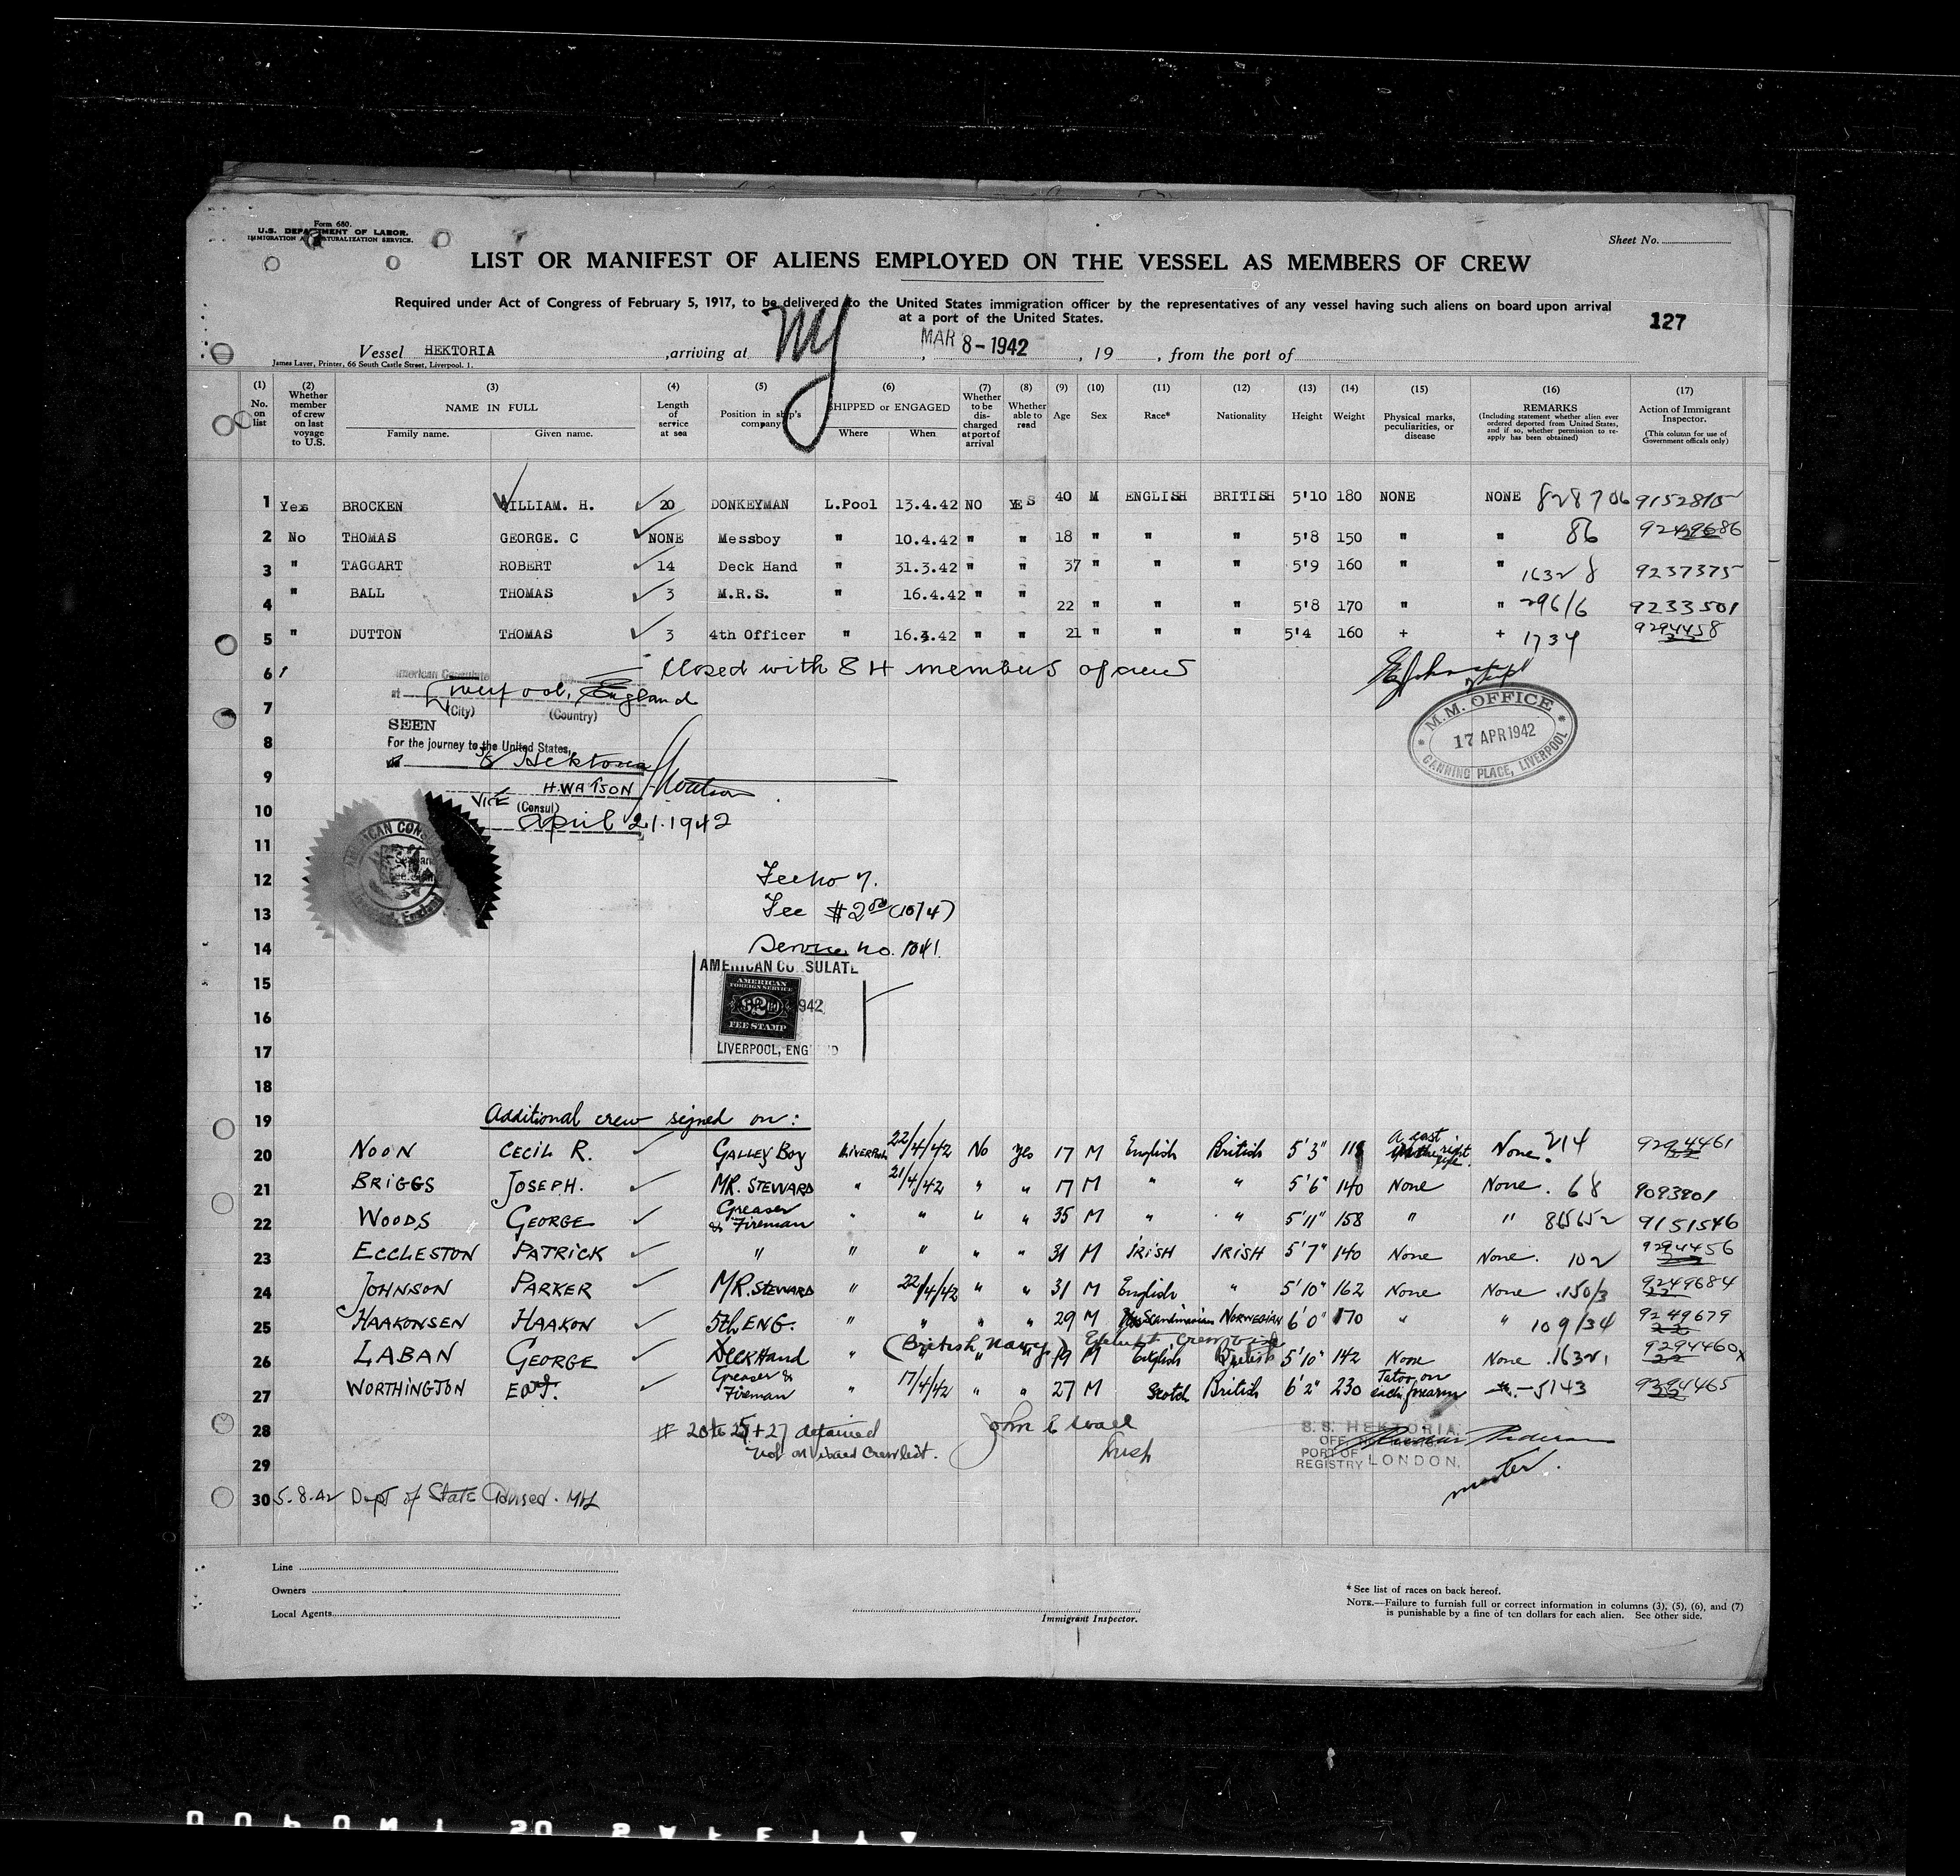 Form 680.
U.S. DEPARTMENT OF LABOR.
IMMIGRATION NATURALIZATION SERVICE.
Sheet No.
LIST OR MANIFEST OF ALIENS EMPLOYED ON THE VESSEL AS MEMBERS OF CREW
Required under Act of Congress of February 5, 1917, to be delivered to the United States immigration officer by the representatives of any vessel having such aliens on board upon arrival
at a port of the United States.
127
Vessel HEKTORIA ,arriving at NY , MAR 8-1942 , 19 , from the port of
James Laver, Printer, 66 South Castle Street, Liverpool. 1.
(1) No. on list (2) Whether member of crew on last voyage to U.S. (3) NAME IN FULL Family name. Given name. (4) Length of service at sea (5) Position in ship's company (6) SHIPPED or ENGAGED Where When (7) Whether to be discharged at port of arrival (8) Whether able to read (9) Age (10) Sex (11) Race* (12) Nationality (13) Height (14) Weight (15) Physical marks, peculiarities, or disease (16) REMARKS (Including statement whether alien ever ordered deported from United States, and if so, whether permission to re-apply has been obtained) (17) Action of Immigrant Inspector. (This column for use of Government officials only)
1 Yes BROCKEN WILLIAM. H. 20 DONKEYMAN L.Pool 13.4.42 NO YES 40 M ENGLISH BRITISH 5'10 180 NONE NONE 828706 9152815
2 No THOMAS GEORGE. C NONE Messboy " 10.4.42 " " 18 " " " 5'8 150 " " 86 9249686
3 " TAGGART ROBERT 14 Deck Hand " 31.3.42 " " 37 " " " 5'9 160 " " 1632 8 9237375
4 " BALL THOMAS 3 M.R.S. " 16.4.42 " " 22 " " " 5'8 170 " " 296/6 9233501
5 " DUTTON THOMAS 3 4th Officer " 16.4.42 " " 21 " " " 5'4 160 + + 1734 9294458
6 Closed with 84 members of crew
American Consulate
at Liverpool, England
7 (City) (Country)
SEEN
8 For the journey to the United States,
SS Hektoria
9 H. WATSON
VICE (Consul)
10 April 21. 1942
M.M. OFFICE
17 APR 1942
CANNING PLACE, LIVERPOOL
11
12 Fee no 7.
13 Fee $2.00 (10/4)
14 Service no. 1041.
AMERICAN CONSULATE
15 AMERICAN FOREIGN SERVICE
$2 1942
16 FEE STAMP
17 LIVERPOOL, ENGLAND
18
19 Additional crew signed on:
20 NOON CECIL R. GALLEY BOY LIVERPOOL 22/4/42 No yes 17 M English British 5'3" 118 A cast in the right eye. None. 214 9294461
21 BRIGGS JOSEPH. MR. STEWARD " 21/4/42 " " 17 M " " 5'6" 140 None None. 68 9093801
22 WOODS GEORGE Greaser & Fireman " " " " 35 M " " 5'11" 158 " " 865652 9151546
23 ECCLESTON PATRICK " " " " " 31 M IRISH IRISH 5'7" 140 None None. 102 9294456
24 JOHNSON PARKER MR. STEWARD " 22/4/42 " " 31 M English " 5'10" 162 None None .150/3 9249684
25 HAAKONSEN HAAKON 5th ENG. " " " " 29 M Scandinavian NORWEGIAN 6'0" 170 " " 109/34 9249679
(British Navy)
26 LABAN GEORGE Deck Hand " " " " 19 M English British 5'10" 142 None None .16321 9294460x
27 WORTHINGTON EDW. Greaser & Fireman " 17/4/42 " " 27 M Scotch British 6'2" 230 Tatoo on each forearm 5143 9294465
28 # 20 to 25 + 27 detained
not on visaed crew list.
John E Wall
Insp
S.S. HEKTORIA.
PORT OF REGISTRY LONDON.
master.
29
30 5.8.42 Dept of State Advised. MH
Line
Owners
Local Agents
Immigrant Inspector.
* See list of races on back hereof.
NOTE.—Failure to furnish full or correct information in columns (3), (5), (6), and (7)
is punishable by a fine of ten dollars for each alien. See other side.
DUPONT SAFETY